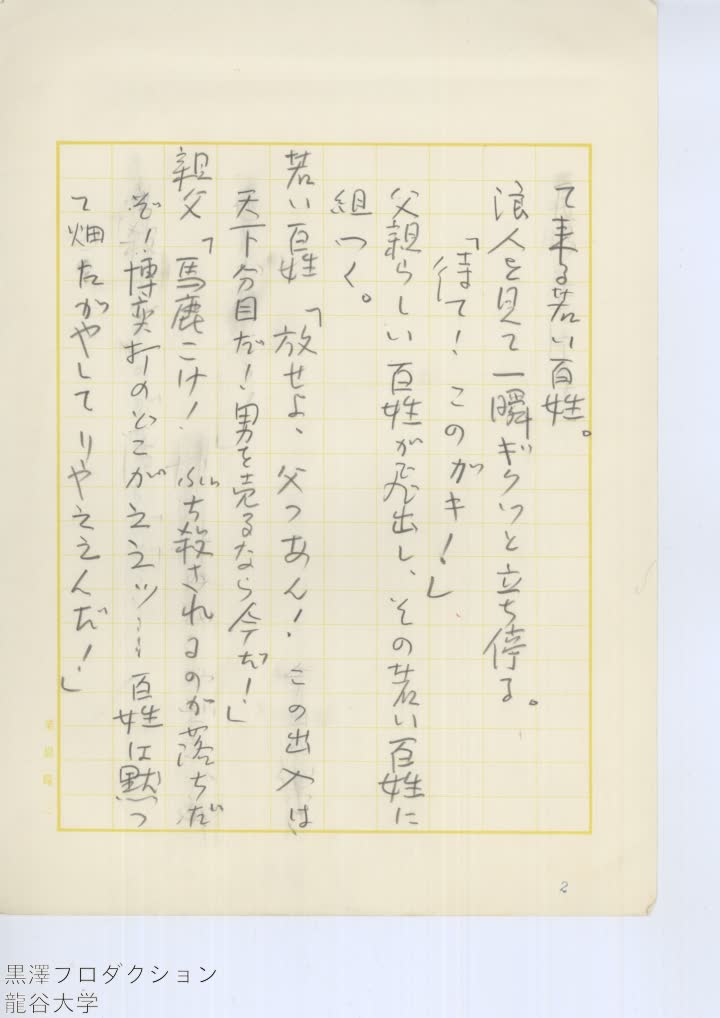 て来る若い百姓。
浪人を見て一瞬ギクッと立ち停る。
「待て！このガキ！」
父親らしい百姓が飛出し、その若い百姓に
組つく。
若い百姓「放せよ、父つあん！この出入は
天下分目だ！男を売るなら今だ！」
親父「馬鹿こけ！ぶち殺されるのが落ちだ
ぞ！博奕打のどこがええッ……百姓は黙っ
て畑たがやしてりやええんだ！」
2
黒澤プロダクション
龍谷大学